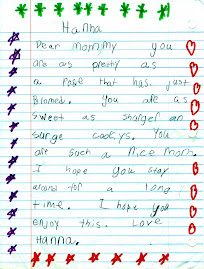 Hanna
Dear mommy you
are as pretty as
a rose that has just
Blomed. You are as
sweet as sharger on
surge cookys. You
are such a nice mom.
I hope you stay
around for a long
time. I hope you
enjoy this. Love
Hanna.